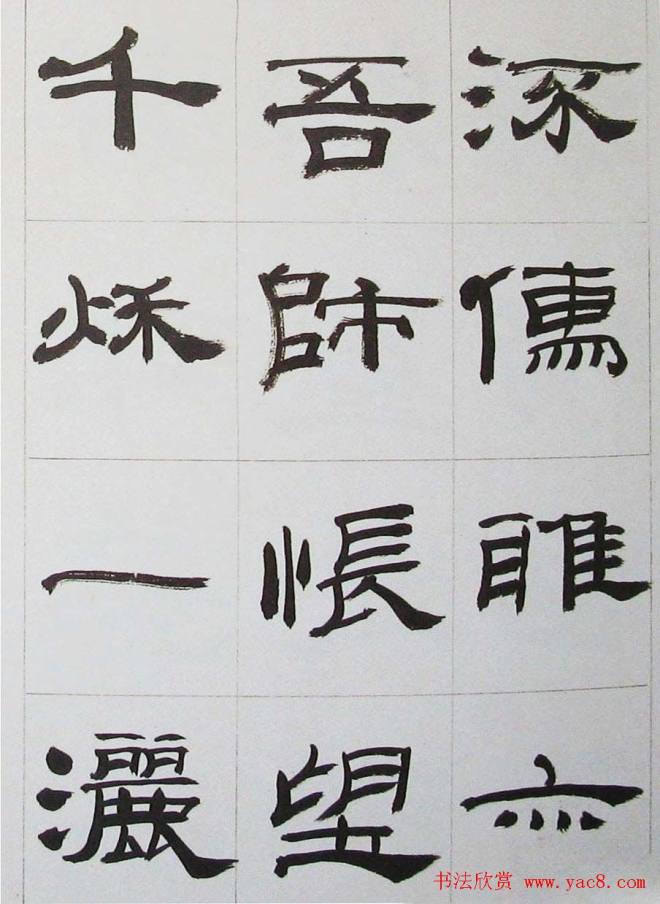 流儒雅亦
吾師悵望
千秌一灑
书法欣赏 www.yac8.com